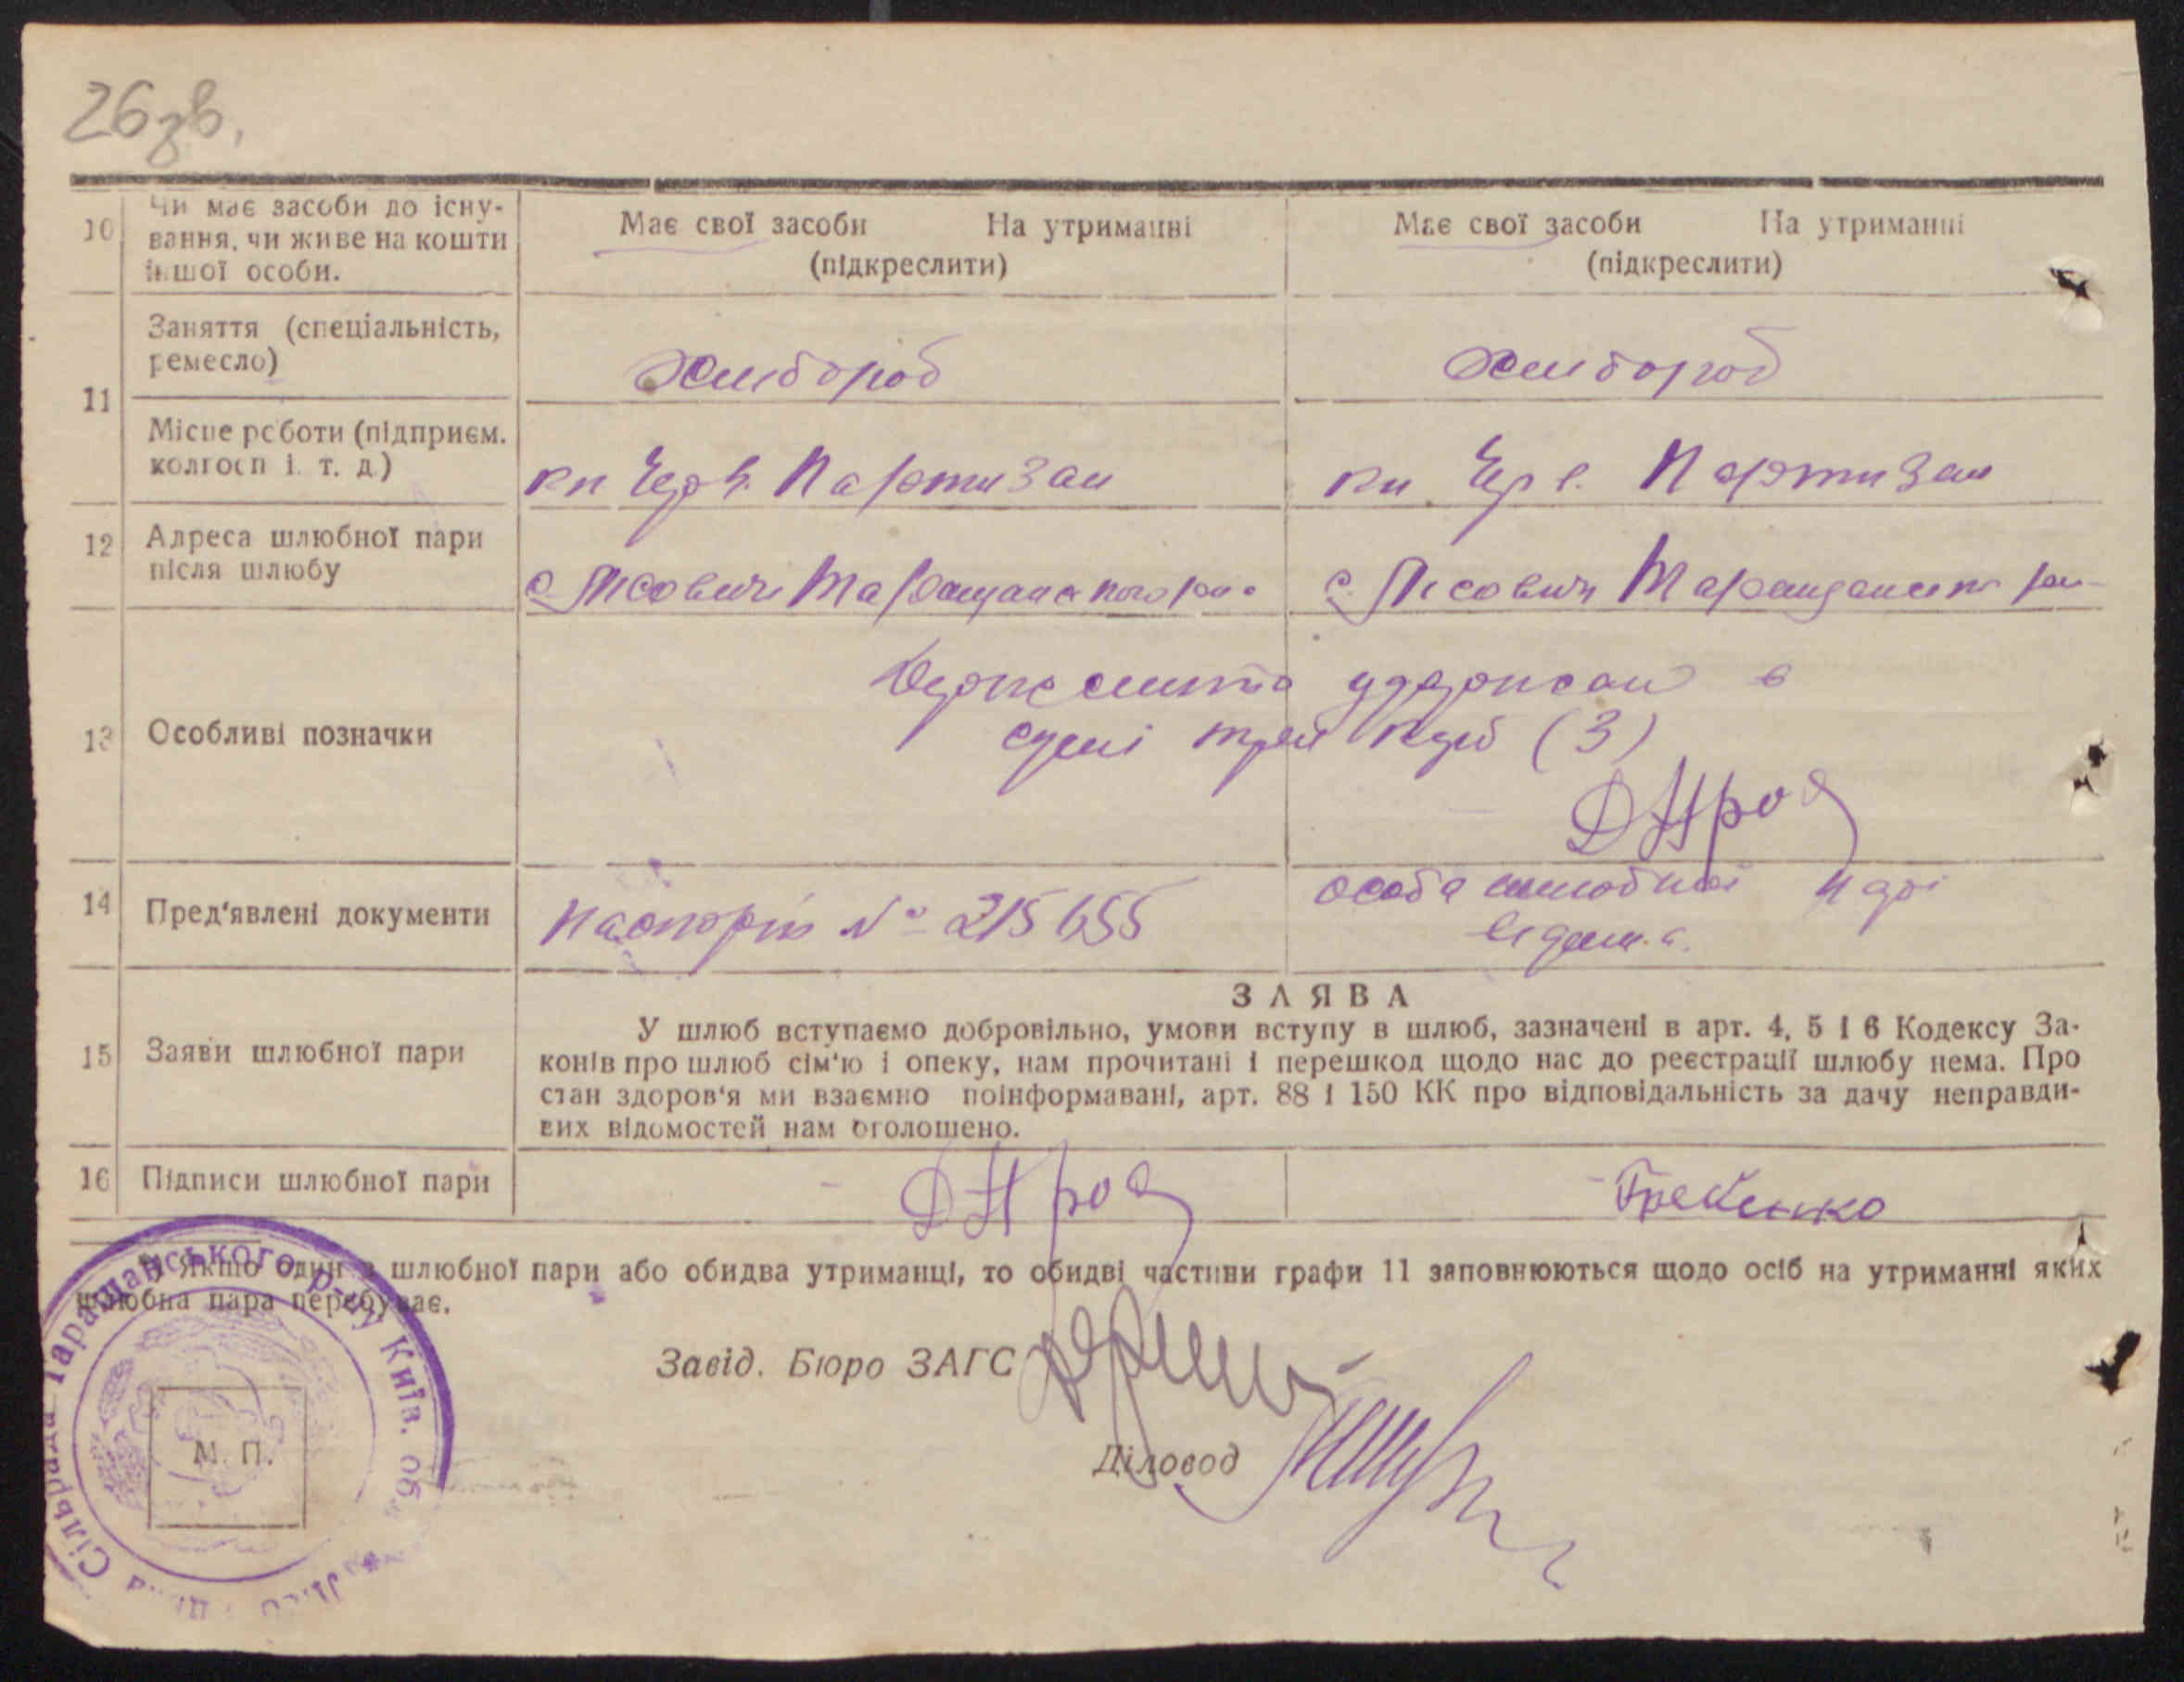 26 зв.
10 Чи має засоби до існу-
вання, чи живе на кошти
іншої особи.
Має свої засоби На утриманні
(підкреслити)
Має свої засоби На утриманні
(підкреслити)
11 Заняття (спеціальність,
ремесло)
хлибороб
хлибороб
Місце роботи (підприєм.
колгосп і. т. д.)
кп Черв. Партизан
кп Черв. Партизан
12 Адреса шлюбної пари
після шлюбу
с. Лісовичі Таращанського рай.
с. Лісовичі Таращанського рай
13 Особливі позначки
Держмито удержано в
сумі три карб (3)
14 Пред'явлені документи
Паспорт № 215655
особа шлюбної парі
відома.
15 Заяви шлюбної пари
ЗАЯВА
У шлюб вступаємо добровільно, умови вступу в шлюб, зазначені в арт. 4, 5 і 6 Кодексу За-
конів про шлюб сім'ю і опеку, нам прочитані і перешкод щодо нас до реєстрації шлюбу нема. Про
стан здоров'я ми взаємно поінформавані, арт. 88 і 150 КК про відповідальність за дачу неправди-
вих відомостей нам оголошено.
16 Підписи шлюбної пари
Гребенко
Якщо один з шлюбної пари або обидва утриманці, то обидві частини графи 11 заповнюються щодо осіб на утриманні яких
шлюбна пара перебуває.
Завід. Бюро ЗАГС
Діловод
М. П.
Сільрада Таращанського р-ну Київ. об